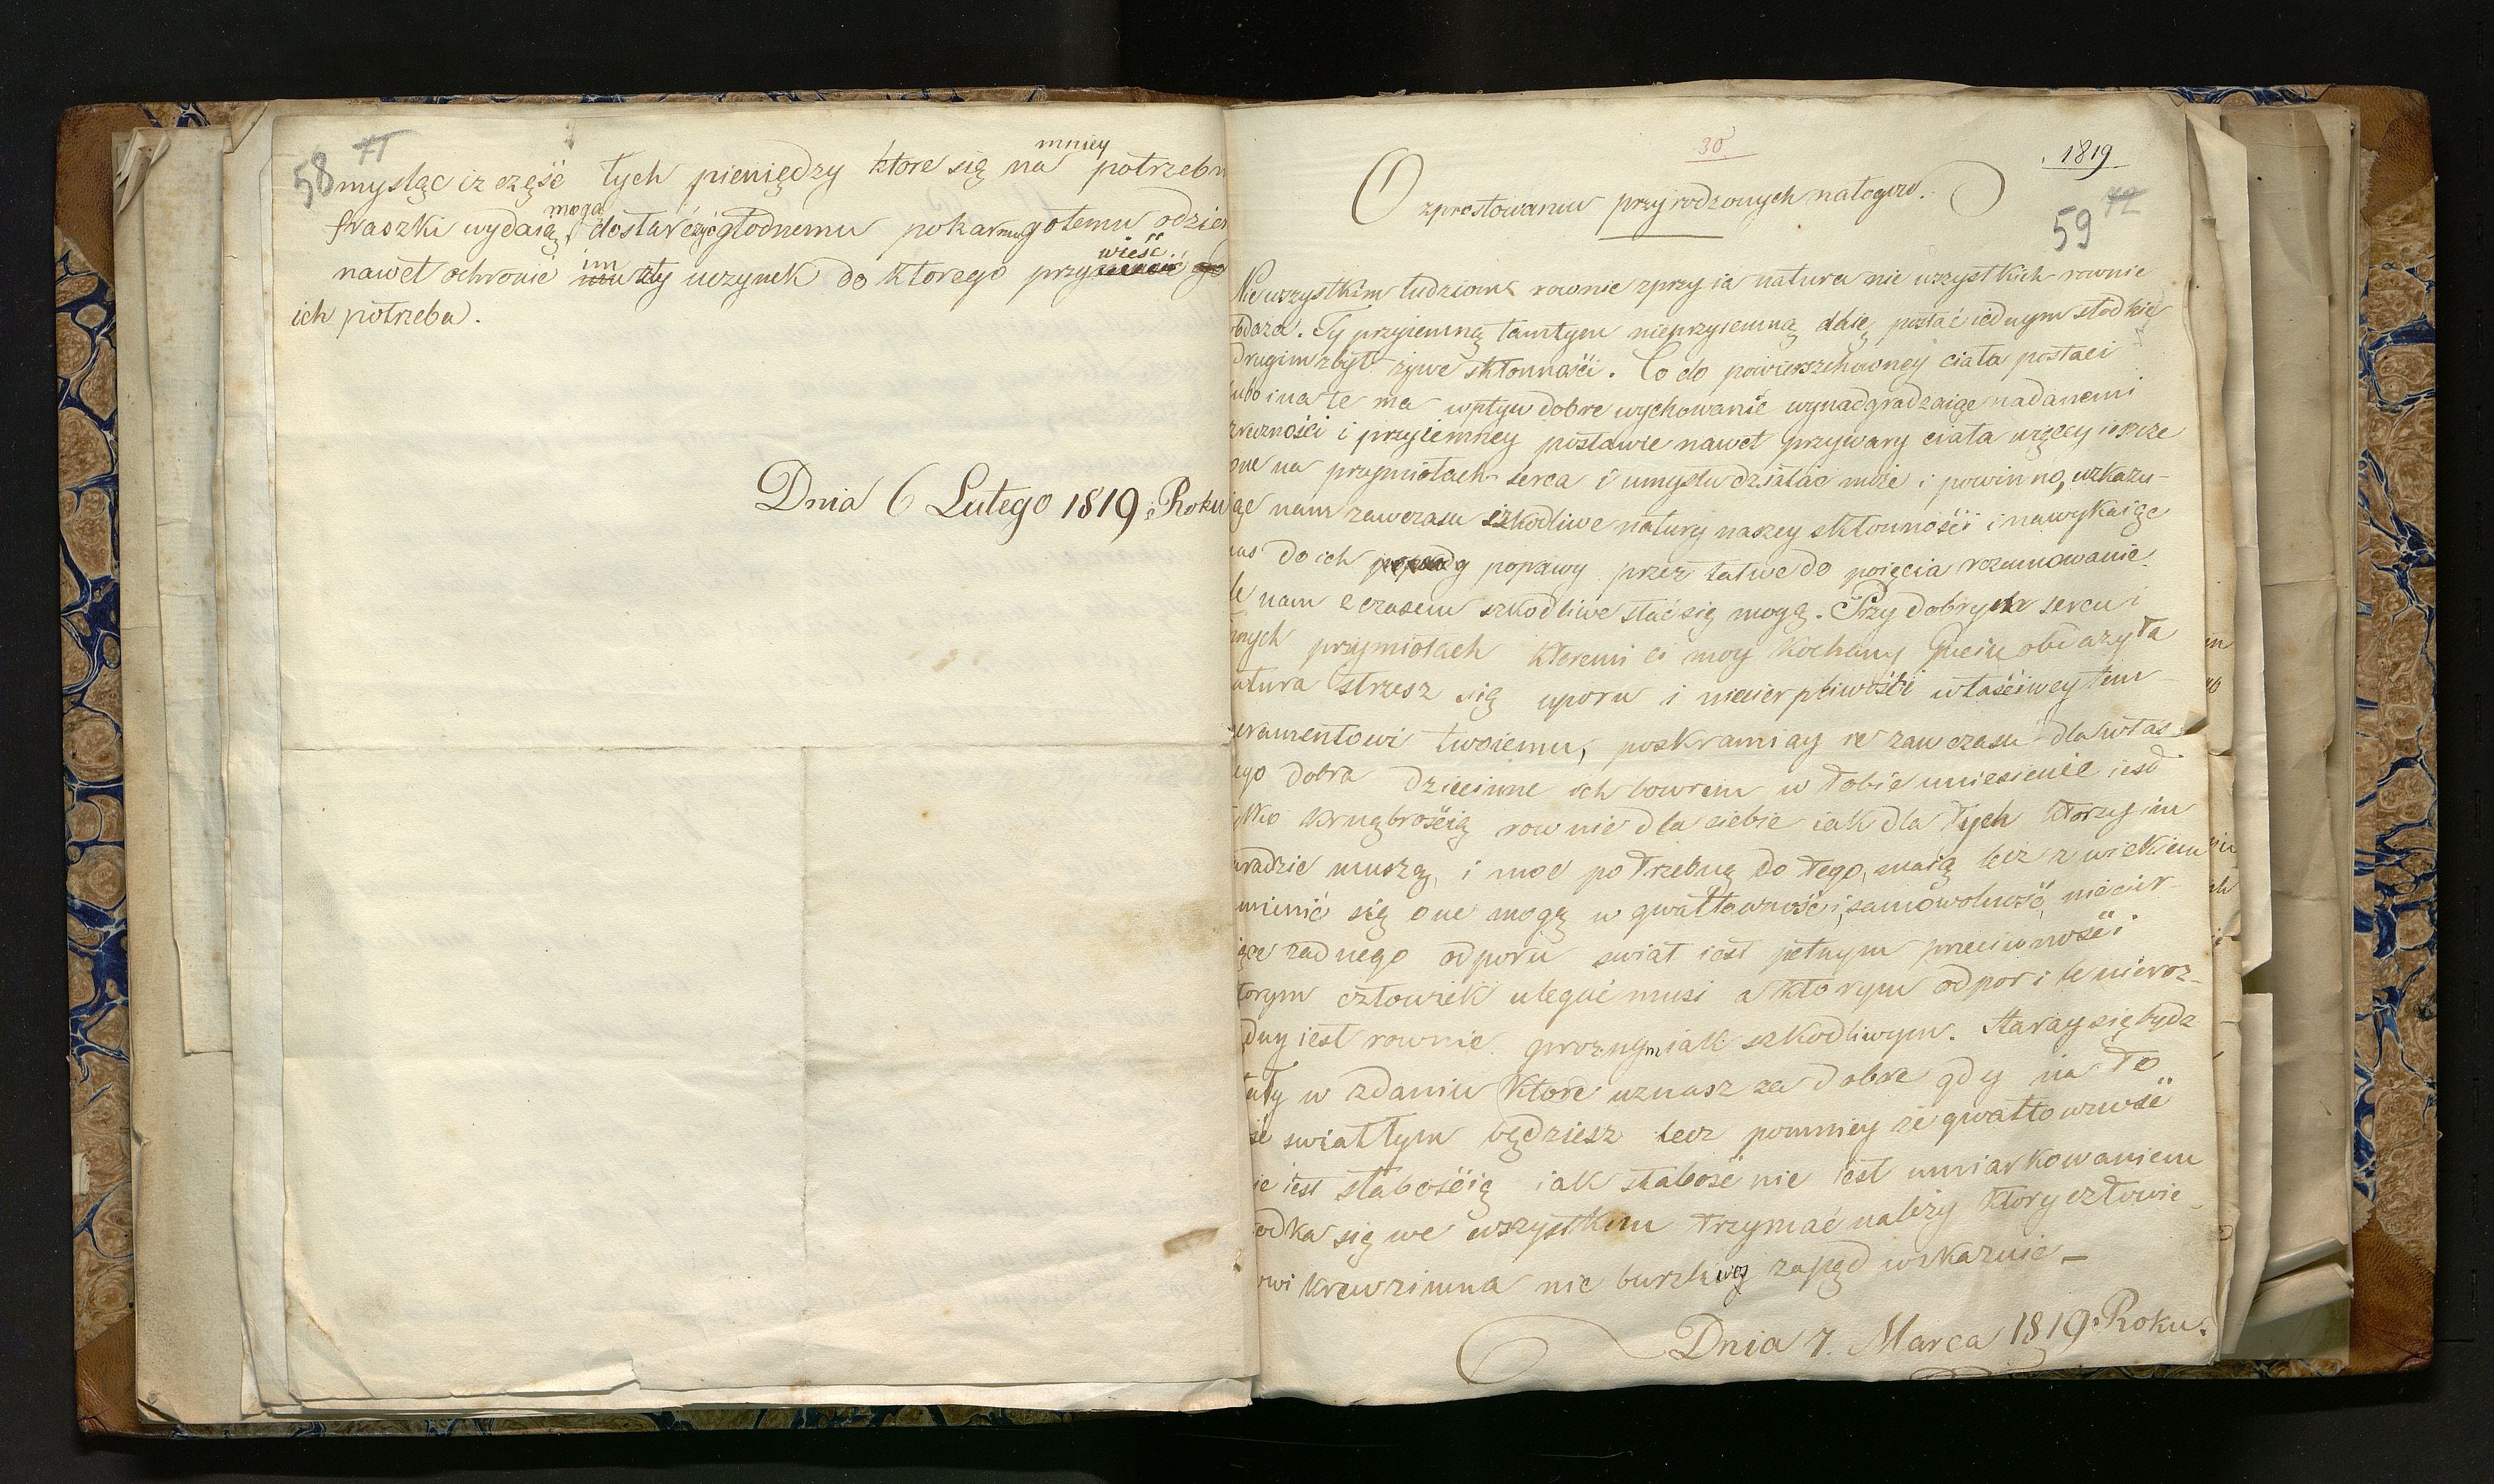 58 71
mniey
mysląc iz część tych pieniędzy ktore się na potrzebn
mogą
fraszki wydaią, dostarczyć głodnemu pokarmu gołemu odzien
im wieść
nawet ochronić zły uczynek do ktorego przy
ich potrzeba.
Dnia 6 Lutego 1819. Roku
30
1819
O sprostowaniu przyrodzonych nałogow.
59 72
Nie wszystkim ludziom rownie sprzyia natura nie wszystkich rownie
obdaza. Ty przyiemną tamtym nieprzyiemną daię postać iednym słodkie
drugim zbyt zywe skłonności. Co do powierszchowney ciała postaci
lubo i na te ma wpływ dobre wychowanie wynadgradzaiąc nadanemi
zręczności i przyiemney postawie nawet przywary ciała więcey ieszcze
one na przymiotach serca i umysłu działać może i powinno, wskazu-
iąc nam zawczasu szkodliwe natury naszey skłonności i nawykaiąc
nas do ich poprawy przez łatwe do poięcia rozumowanie
le nam z czasem szkodliwe stać się mogą. Przy dobrym sercu i
nnych przymiotach ktoremi ci moy Kochany Guciu obdazyła
natura strzesz się uporu i niecierpliwości właściwey tem-
peramentowi twoiemu, poskramiay ie zawczasu dla włas-
ego dobra dziecinne ich bowiem w tobie uniesienie iest
ylko krnąbrością rownie dla ciebie iak dla tych ktorzy im
aradzić muszą, i moc potrzebną do tego, maią lecz z wiekiem
mienić się one mogą w gwałtowność i samowolność niecier-
iące zadnego odporu swiat iest pełnym przeciwności
torym człowiek ulegać musi a ktorym odpor i le nieroz-
dny iest rownie groznym iak szkodliwym. Staray się bydz
tały w zdaniu ktore uznasz za dobre gdy na to
ść swiattym będziesz lecz pomniey ze gwałtowność
ie iest słabością iak słabość nie iest umiarkowaniem
odka się we wszystkim trzymać należy ktory człowie-
owi krew zimna nie burzliwy zapęd wskazuie –
Dnia 7. Marca 1819. Roku.